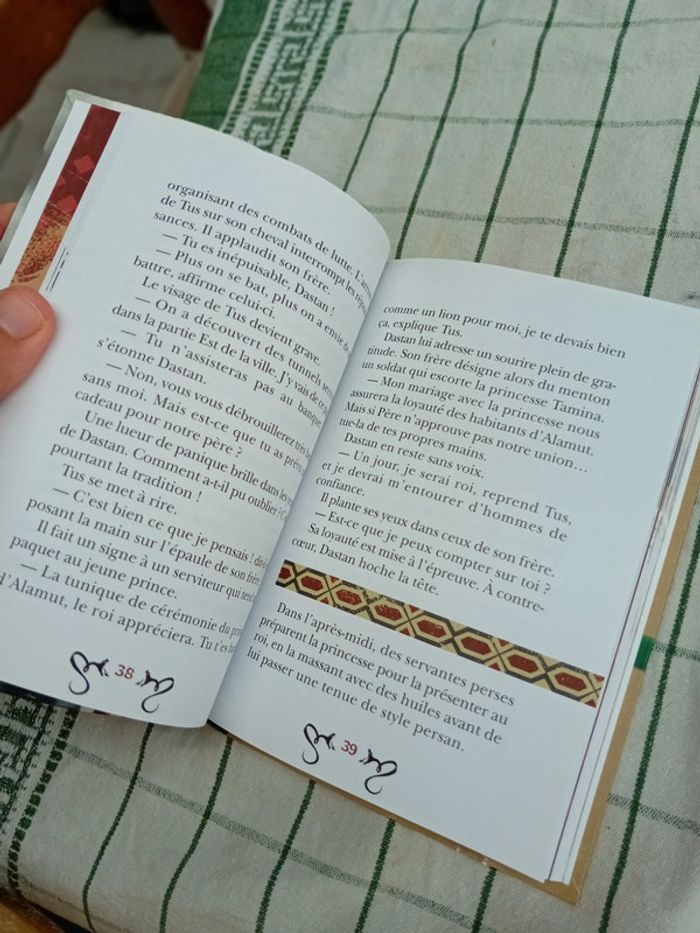 organisant des combats de lutte. L'arrivée
de Tus sur son cheval interrompt les
sances. Il applaudit son frère.
— Tu es inépuisable, Dastan !
— Plus on se bat, plus on a envie de
battre, affirme celui-ci.
Le visage de Tus devient grave.
— On a découvert des tunnels
dans la partie Est de la ville. J'y vais de ce
— Tu n'assisteras pas au
s'étonne Dastan.
— Non, vous vous débrouillerez très
sans moi. Mais est-ce que tu as
cadeau pour notre père ?
Une lueur de panique brille dans les
de Dastan. Comment a-t-il pu oublier ?
pourtant la tradition !
Tus se met à rire.
— C'est bien ce que je pensais !
posant la main sur l'épaule de son
Il fait un signe à un serviteur qui tend
paquet au jeune prince.
— La tunique de cérémonie du
d'Alamut, le roi appréciera. Tu t'es
38
comme un lion pour moi, je te devais bien
ça, explique Tus.
Dastan lui adresse un sourire plein de gra-
titude. Son frère désigne alors du menton
un soldat qui escorte la princesse Tamina.
— Mon mariage avec la princesse nous
assurera la loyauté des habitants d'Alamut.
Mais si Père n'approuve pas notre union…
tue-la de tes propres mains.
Dastan en reste sans voix.
— Un jour, je serai roi, reprend Tus,
et je devrai m'entourer d'hommes de
confiance.
Il plante ses yeux dans ceux de son frère.
— Est-ce que je peux compter sur toi ?
Sa loyauté est mise à l'épreuve. À contre-
cœur, Dastan hoche la tête.
Dans l'après-midi, des servantes perses
préparent la princesse pour la présenter au
roi, en la massant avec des huiles avant de
lui passer une tenue de style persan.
39